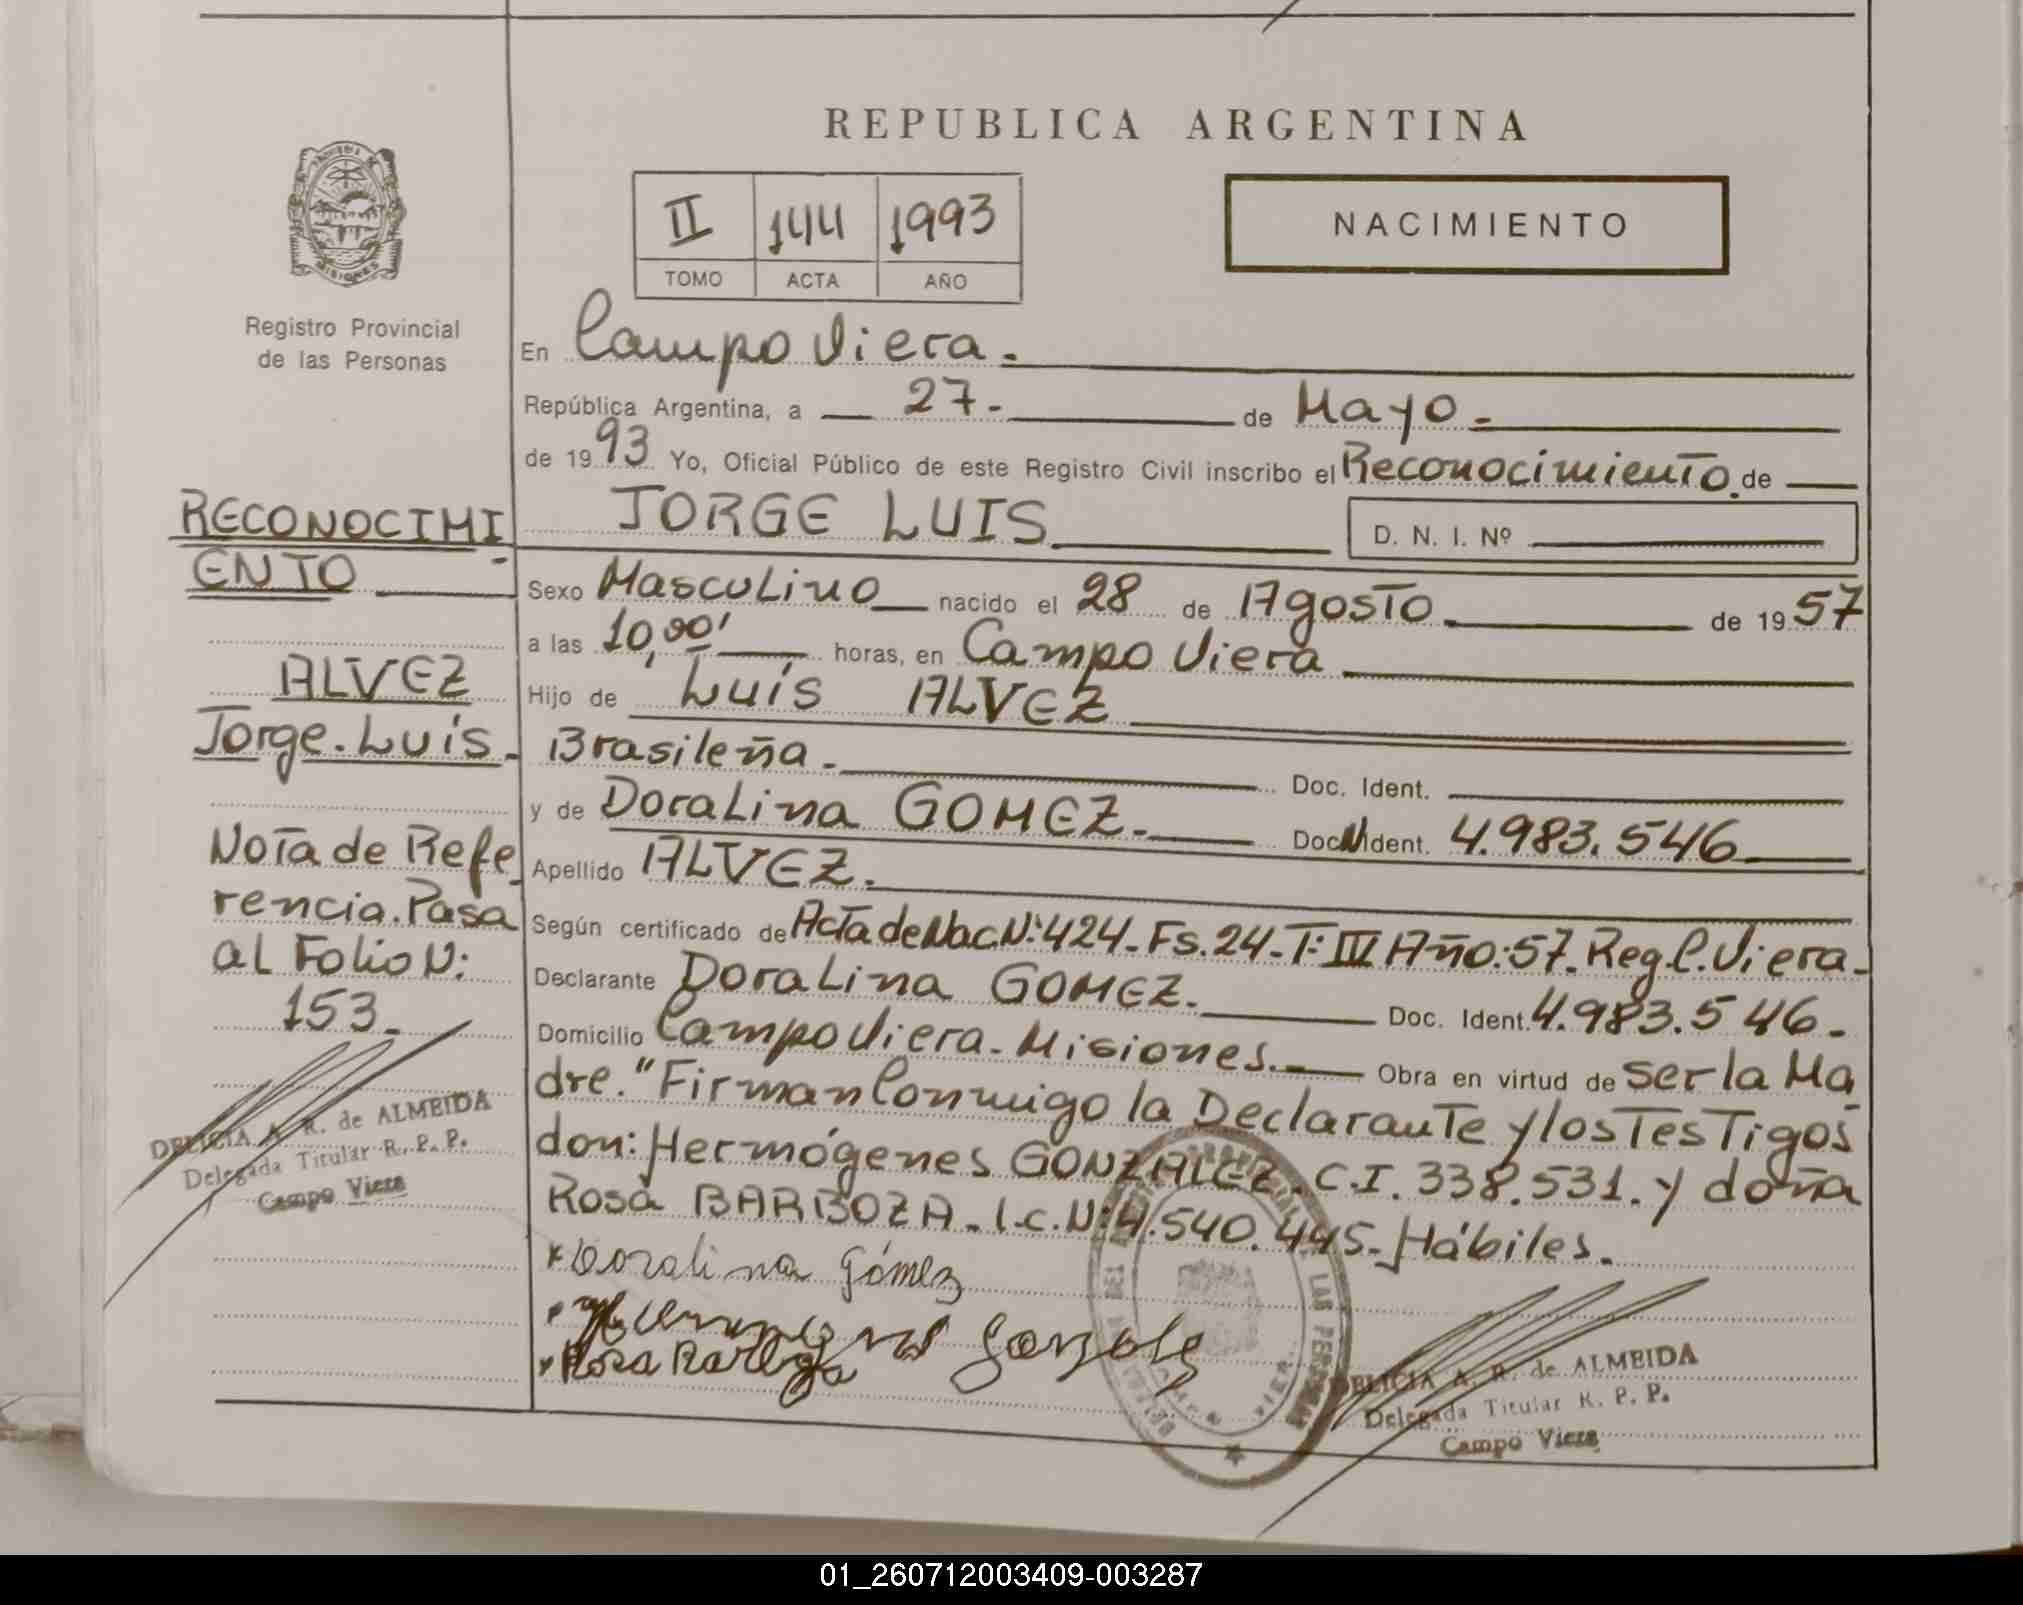 REPUBLICA ARGENTINA
II 144 1993
TOMO ACTA AÑO
NACIMIENTO
MISIONES
Registro Provincial
de las Personas
En Campo Viera.
República Argentina, a 27. de Mayo.
de 1993 Yo, Oficial Público de este Registro Civil inscribo el Reconocimiento. de
JORGE LUIS D. N. I. Nº
Sexo Masculino nacido el 28 de Agosto de 1957
a las 10,00' horas, en Campo Viera
Hijo de Luis ALVEZ
Brasileña. Doc. Ident.
y de Doralina GOMEZ. Doc. Ident. 4.983.546
Apellido ALVEZ.
Según certificado de Acta de Nac. N: 424. Fs. 24. T: III Año: 57. Reg. C. Viera.
Declarante Doralina GOMEZ. Doc. Ident. 4.983.546.
Domicilio Campo Viera. Misiones. Obra en virtud de ser la Ma
dre. "Firman Conmigo la Declarante y los Testigos
don: Hermógenes GONZALEZ. C.I. 338.531. y doña
Rosa BARBOZA. l.c. N: 4.540.445. Hábiles.
Doralina Gómez
Rosa
DELICIA A. R. de ALMEIDA
Delegada Titular R. P. P.
Campo Viera
RECONOCIMI
ENTO
ALVEZ
Jorge. Luis.
Nota de Refe
rencia. Pasa
al Folio N:
153.
DELICIA A. R. de ALMEIDA
Delegada Titular R. P. P.
Campo Viera
01_260712003409-003287